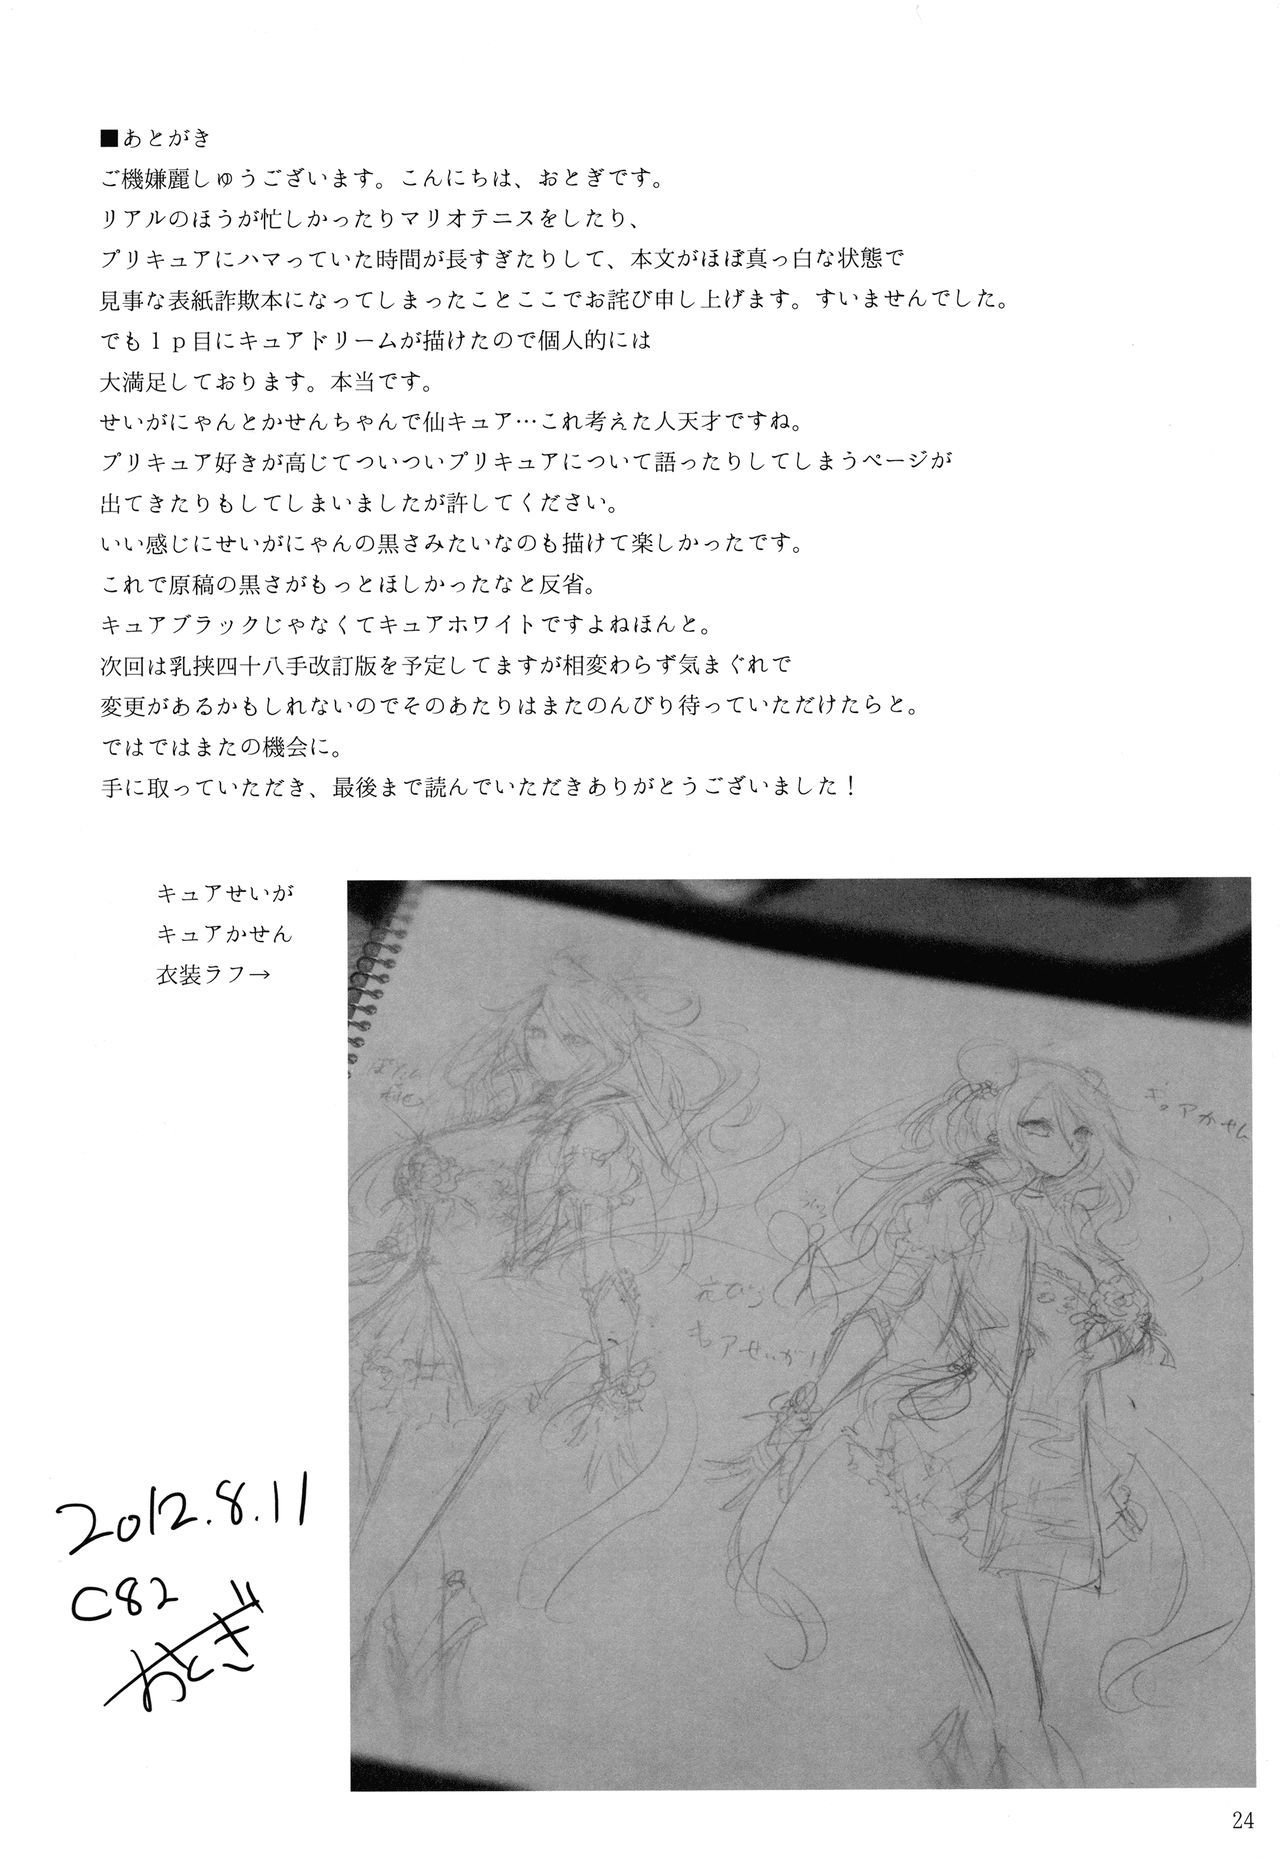 ■あとがき
ご機嫌麗しゅうございます。こんにちは、おとぎです。
リアルのほうが忙しかったりマリオテニスをしたり、
プリキュアにハマっていた時間が長すぎたりして、本文がほぼ真っ白な状態で
見事な表紙詐欺本になってしまったことここでお詫び申し上げます。すいませんでした。
でも１ｐ目にキュアドリームが描けたので個人的には
大満足しております。本当です。
せいがにゃんとかせんちゃんで仙キュア…これ考えた人天才ですね。
プリキュア好きが高じてついついプリキュアについて語ったりしてしまうページが
出てきたりもしてしまいましたが許してください。
いい感じにせいがにゃんの黒さみたいなのも描けて楽しかったです。
これで原稿の黒さがもっとほしかったなと反省。
キュアブラックじゃなくてキュアホワイトですよねほんと。
次回は乳挟四十八手改訂版を予定してますが相変わらず気まぐれで
変更があるかもしれないのでそのあたりはまたのんびり待っていただけたらと。
ではではまたの機会に。
手に取っていただき、最後まで読んでいただきありがとうございました！
キュアせいが
キュアかせん
衣装ラフ→
キュアかせん
キュアせいが
2012.8.11
C82
おとぎ
24